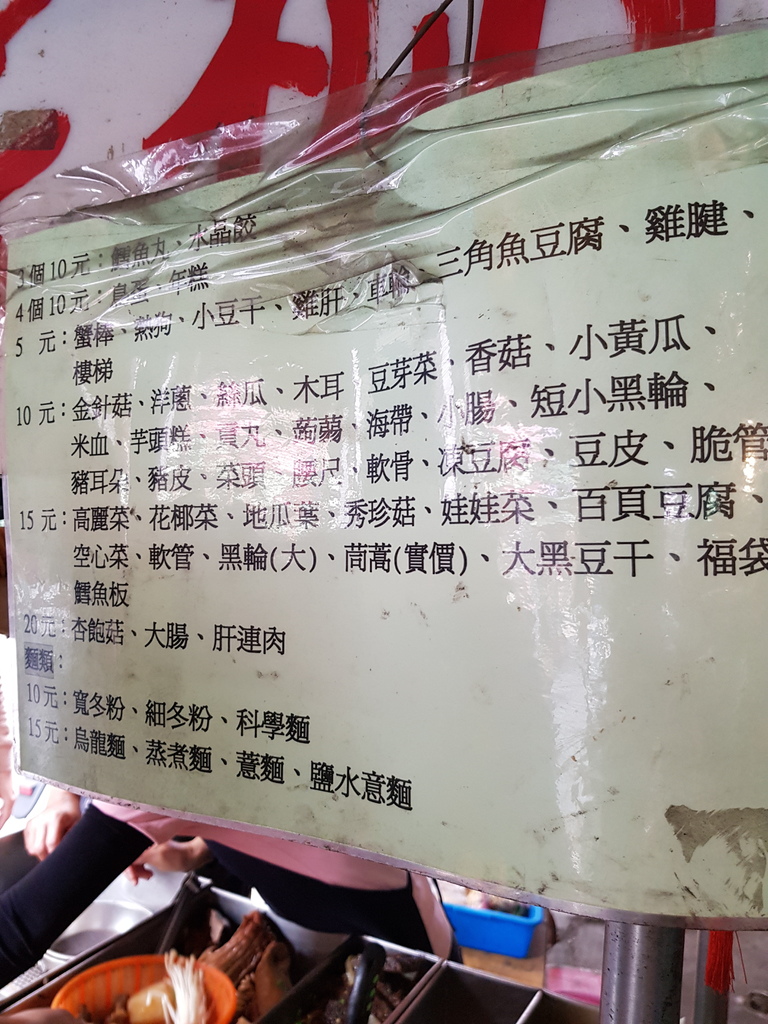 3個10元：鱈魚丸、水晶餃
4個10元：鳥蛋、年糕
5 元：蟹棒、熱狗、小豆干、雞肝、車輪、三角魚豆腐、雞腱、
樓梯
10 元：金針菇、洋蔥、絲瓜、木耳 豆芽菜、香菇、小黃瓜、
米血、芋頭糕、貢丸、蒟蒻、海帶、小腸、短小黑輪、
豬耳朵、豬皮、菜頭、腰尺、軟骨、凍豆腐、豆皮、脆管
15 元：高麗菜、花椰菜、地瓜葉、秀珍菇、娃娃菜、百頁豆腐、
空心菜、軟管、黑輪(大)、茼蒿(實價)、大黑豆干、福袋
鱈魚板
20 元：杏鮑菇、大腸、肝連肉
麵類：
10元：寬冬粉、細冬粉、科學麵
15元：烏龍麵、蒸煮麵、薏麵、鹽水意麵